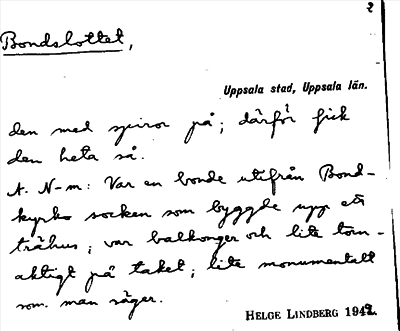 2
Bondslottet,
Uppsala stad, Uppsala län.
den med spiror på; därför fick
den heta så.
A. N-m: Var en bonde utifrån Bond-
kyrko socken som byggde upp ett
trähus; var balkonger och lite torn-
aktigt på taket; lite monumentalt
som man säger.
HELGE LINDBERG 1942.